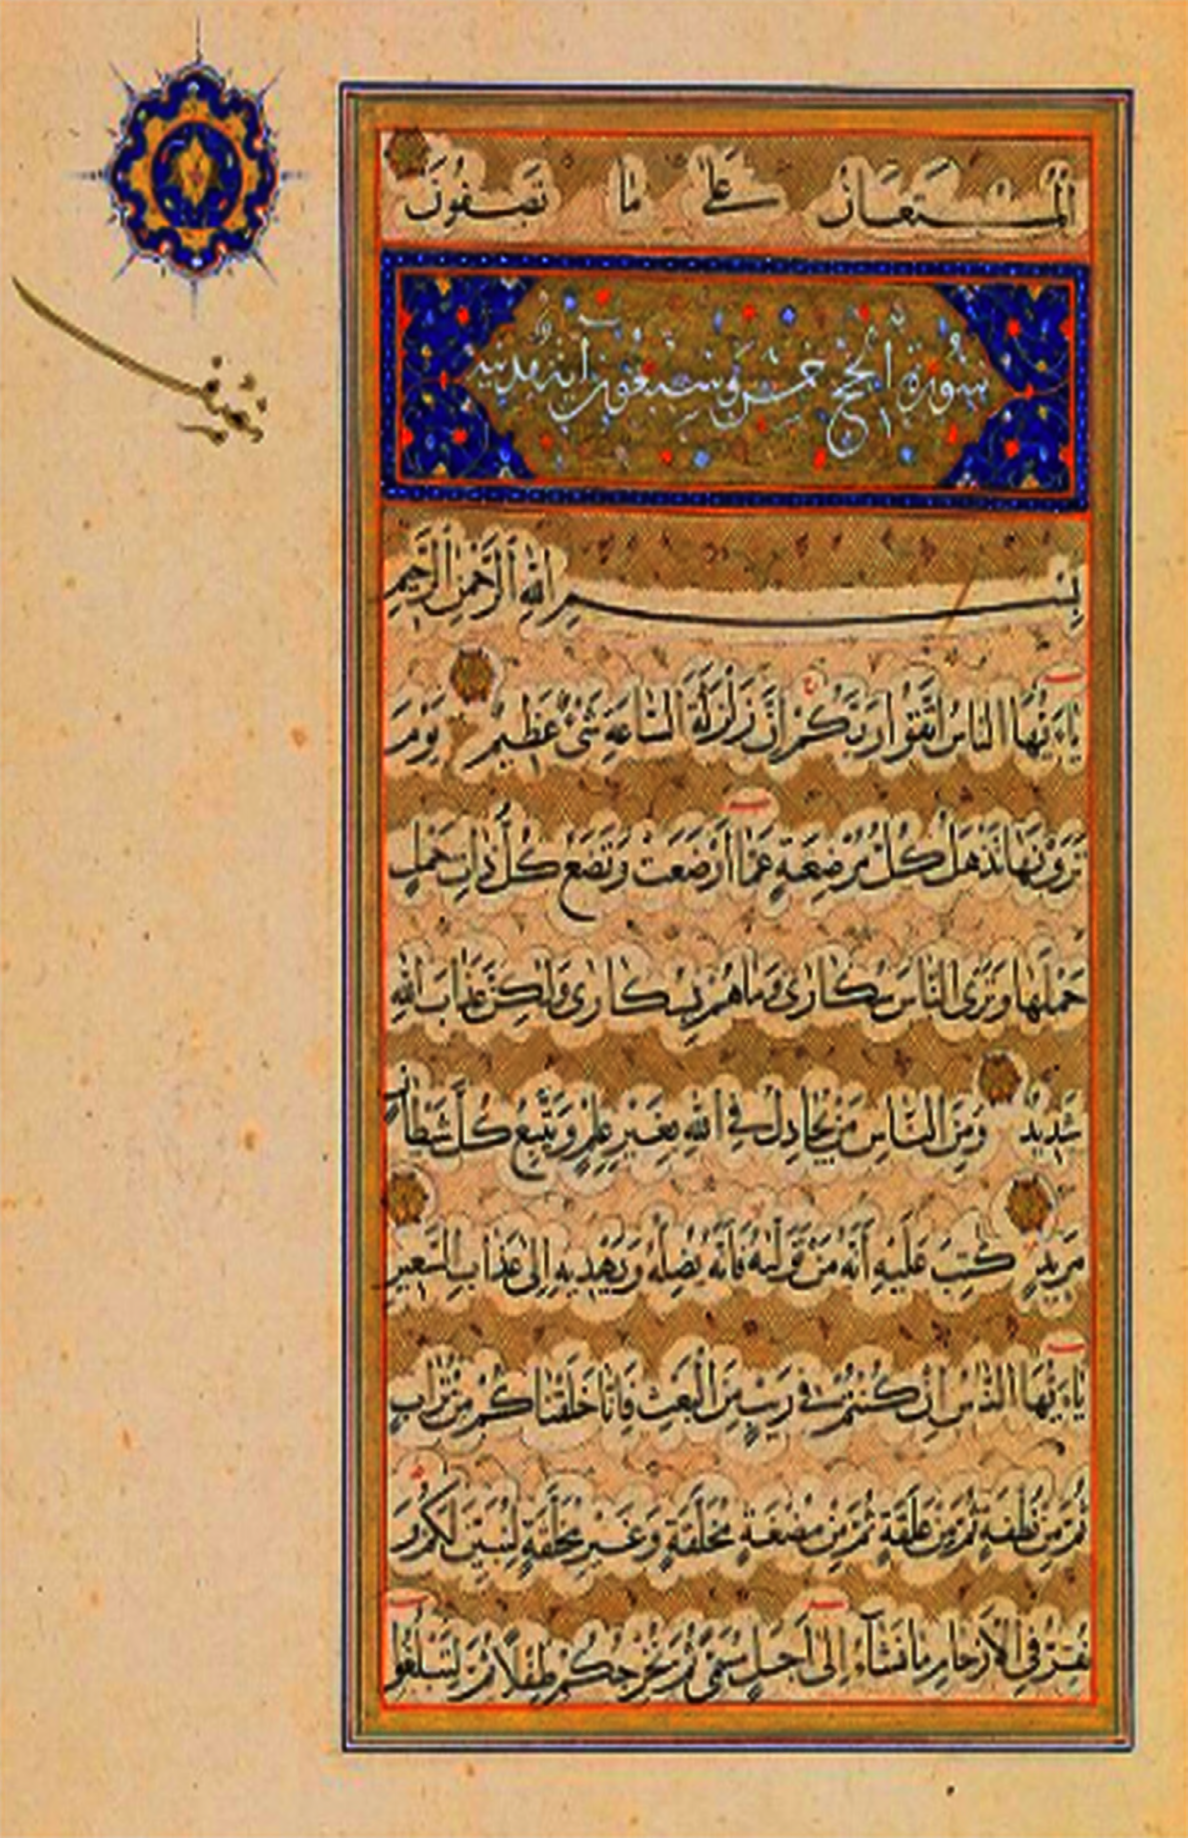 الْمُسْتَعَانُ عَلَىٰ مَا تَصِفُونَ
سورة الحج خمس وسبعون آية مدنية
بِسْمِ اللَّهِ الرَّحْمَٰنِ الرَّحِيمِ
يَاءَيُّهَا النَّاسُ اتَّقُوا رَبَّكُمْ إِنَّ زَلْزَلَةَ السَّاعَةِ شَيْءٌ عَظِيمٌ يَوْمَ
تَرَوْنَهَا تَذْهَلُ كُلُّ مُرْضِعَةٍ عَمَّا أَرْضَعَتْ وَتَضَعُ كُلُّ ذَاتِ حَمْلٍ
حَمْلَهَا وَتَرَى النَّاسَ سُكَارَىٰ وَمَا هُمْ بِسُكَارَىٰ وَلَٰكِنَّ عَذَابَ اللَّهِ
شَدِيدٌ وَمِنَ النَّاسِ مَنْ يُجَادِلُ فِي اللَّهِ بِغَيْرِ عِلْمٍ وَيَتَّبِعُ كُلَّ شَيْطَانٍ
مَرِيدٍ كُتِبَ عَلَيْهِ أَنَّهُ مَنْ تَوَلَّاهُ فَأَنَّهُ يُضِلُّهُ وَيَهْدِيهِ إِلَىٰ عَذَابِ السَّعِيرِ
يَاءَيُّهَا النَّاسُ إِنْ كُنْتُمْ فِي رَيْبٍ مِنَ الْبَعْثِ فَإِنَّا خَلَقْنَاكُمْ مِنْ تُرَابٍ
ثُمَّ مِنْ نُطْفَةٍ ثُمَّ مِنْ عَلَقَةٍ ثُمَّ مِنْ مُضْغَةٍ مُخَلَّقَةٍ وَغَيْرِ مُخَلَّقَةٍ لِنُبَيِّنَ لَكُمْ وَ
نُقِرُّ فِي الْأَرْحَامِ مَا نَشَاءُ إِلَىٰ أَجَلٍ مُسَمًّى ثُمَّ نُخْرِجُكُمْ طِفْلًا ثُمَّ لِتَبْلُغُوا